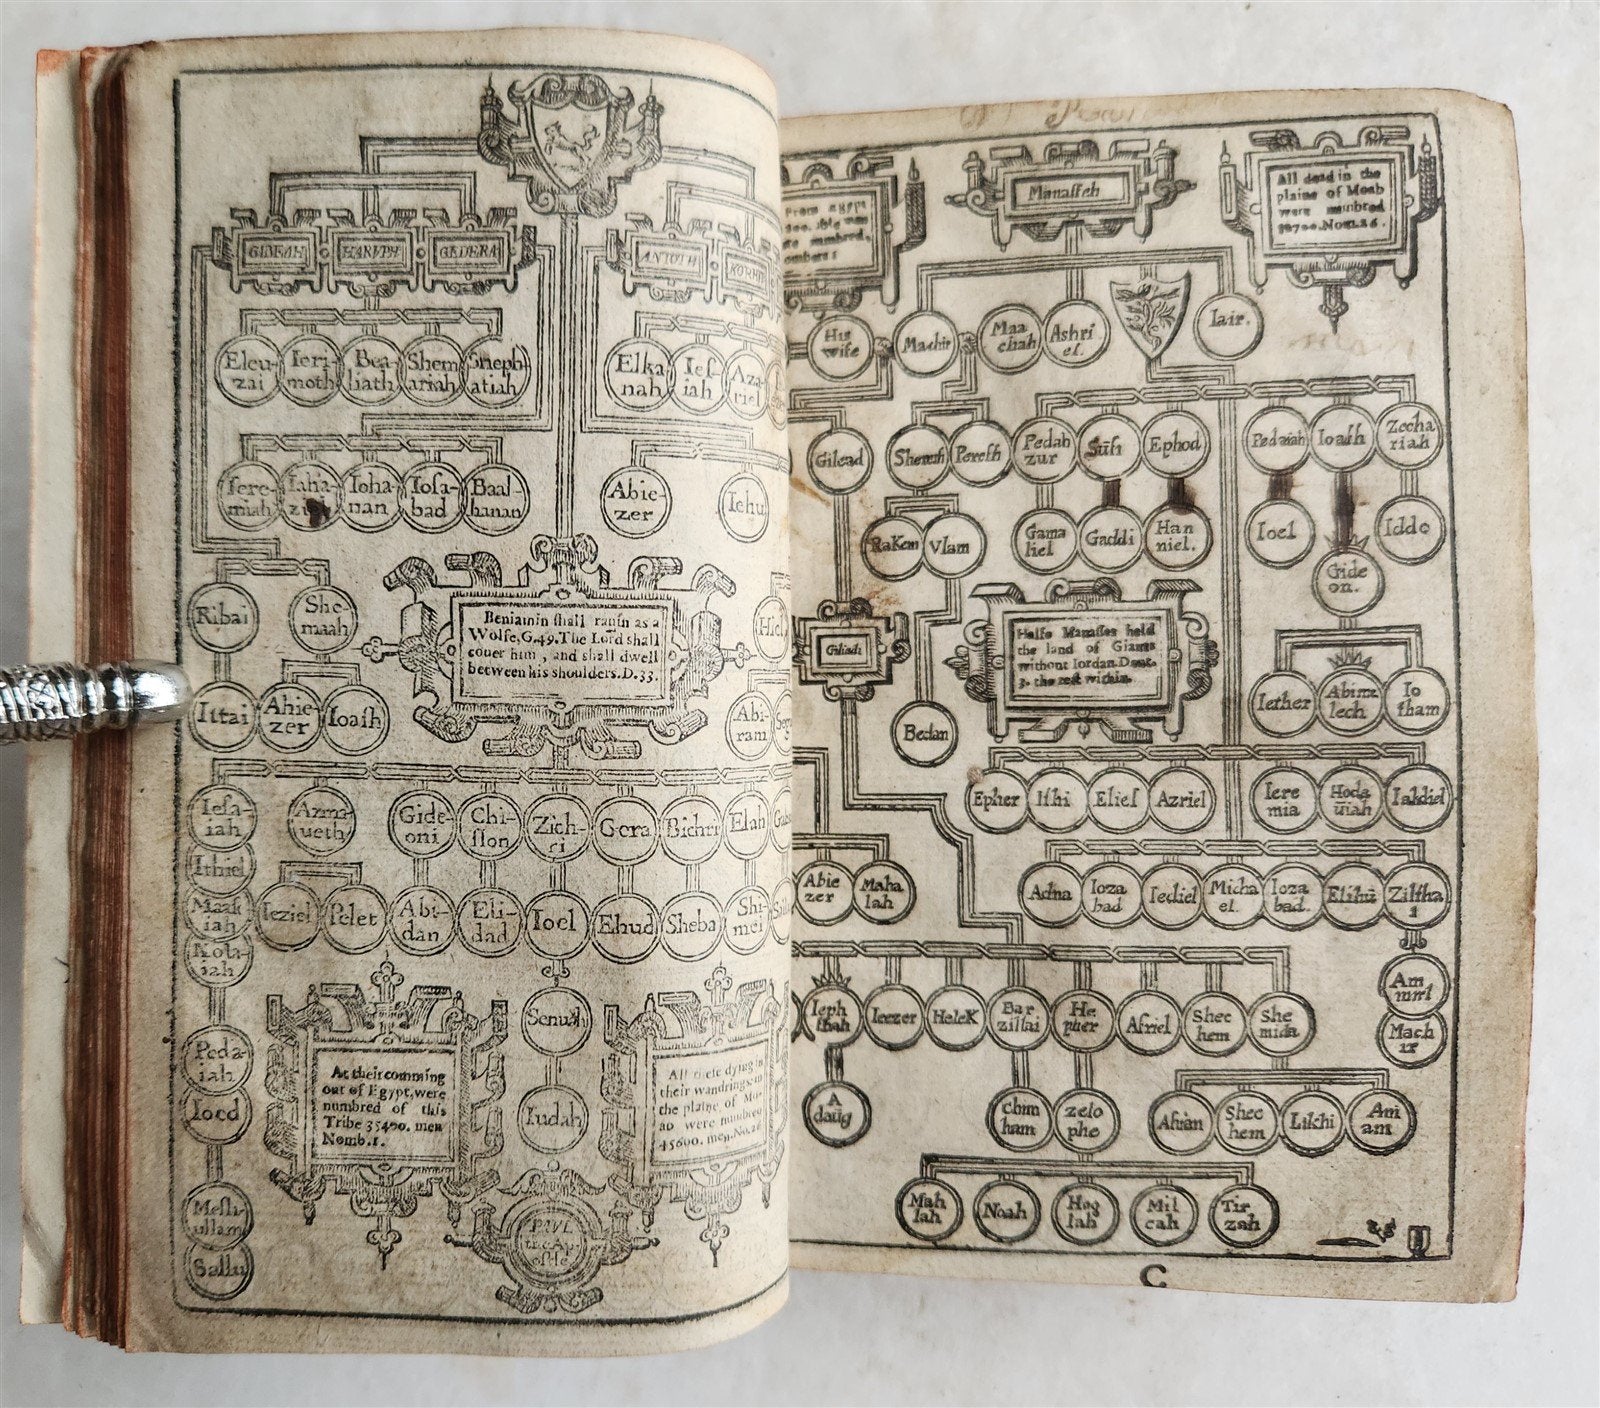 GIBEAH HARVPH GEDERA
ANTOTH
Eleu-
zai
Ieri-
moth
Bea-
liath
Shem
ariah
Sheph
atiah
Elka
nah
Ies-
iah
Aza
riel
Iere-
miah
Iaha-
ziel
Ioha-
nan
Iosa-
bad
Baal-
hanan
Abie-
zer
Iehu
Ribai
She-
maah
Beniamin shall rauin as a
Wolfe, G.49. The Lord shall
couer him, and shall dwell
between his shoulders. D.33.
Ittai
Ahie-
zer
Ioash
Abi-
ram
Iesa-
iah
Azma
ueth
Gide-
oni
Chi-
slon
Zich-
ri
Gera
Bichri
Elah
Ithiel
Maas
iah
Kola-
iah
Ieziel
Pelet
Abi-
dan
Eli-
dad
Ioel
Ehud
Sheba
Shi-
mei
Senuah
Iudah
Peda-
iah
Ioed
Mesh-
ullam
Sallu
At their comming
out of Egypt, were
numbred of this
Tribe 35400. men
Nomb.1.
All these dying in
their wandrings, in
the plaine of Mo-
ab were numbred
45600. men. No.26
PAVL
the Apo
stle
Manasseh
All dead in the
plaine of Moab
were numbred
52700. Nom.26.
His
wife
Machir
Maa
chah
Ashri
el.
Iair.
Gilead
Sheresh
Peresh
Pedah
zur
Susi
Ephod
Pedaiah
Ioash
Zecha
riah
Rakem
Vlam
Gama
liel
Gaddi
Han
niel.
Ioel
Iddo
Gide
on.
Giliad:
Halfe Manasses held
the land of Giants
without Iordan. Deut.
3. the rest within.
Bedan
Iether
Abime
lech
Io
tham
Epher
Ishi
Eliel
Azriel
Iere
mia
Hoda
uiah
Iahdiel
Abie
zer
Maha
lah
Adna
Ioza
bad
Iediel
Micha
el.
Ioza
bad.
Elihu
Ziltha
i
Ieph
thah
Ieezer
Helek
Bar
zillai
He
pher
Asriel
Shec
hem
She
mida
Mach
ir
A
daug
Chim
ham
Zelo
phe
Ahian
Shec
hem
Likhi
Ani
am
Mah
lah
Noah
Hog
lah
Mil
cah
Tir
zah
C